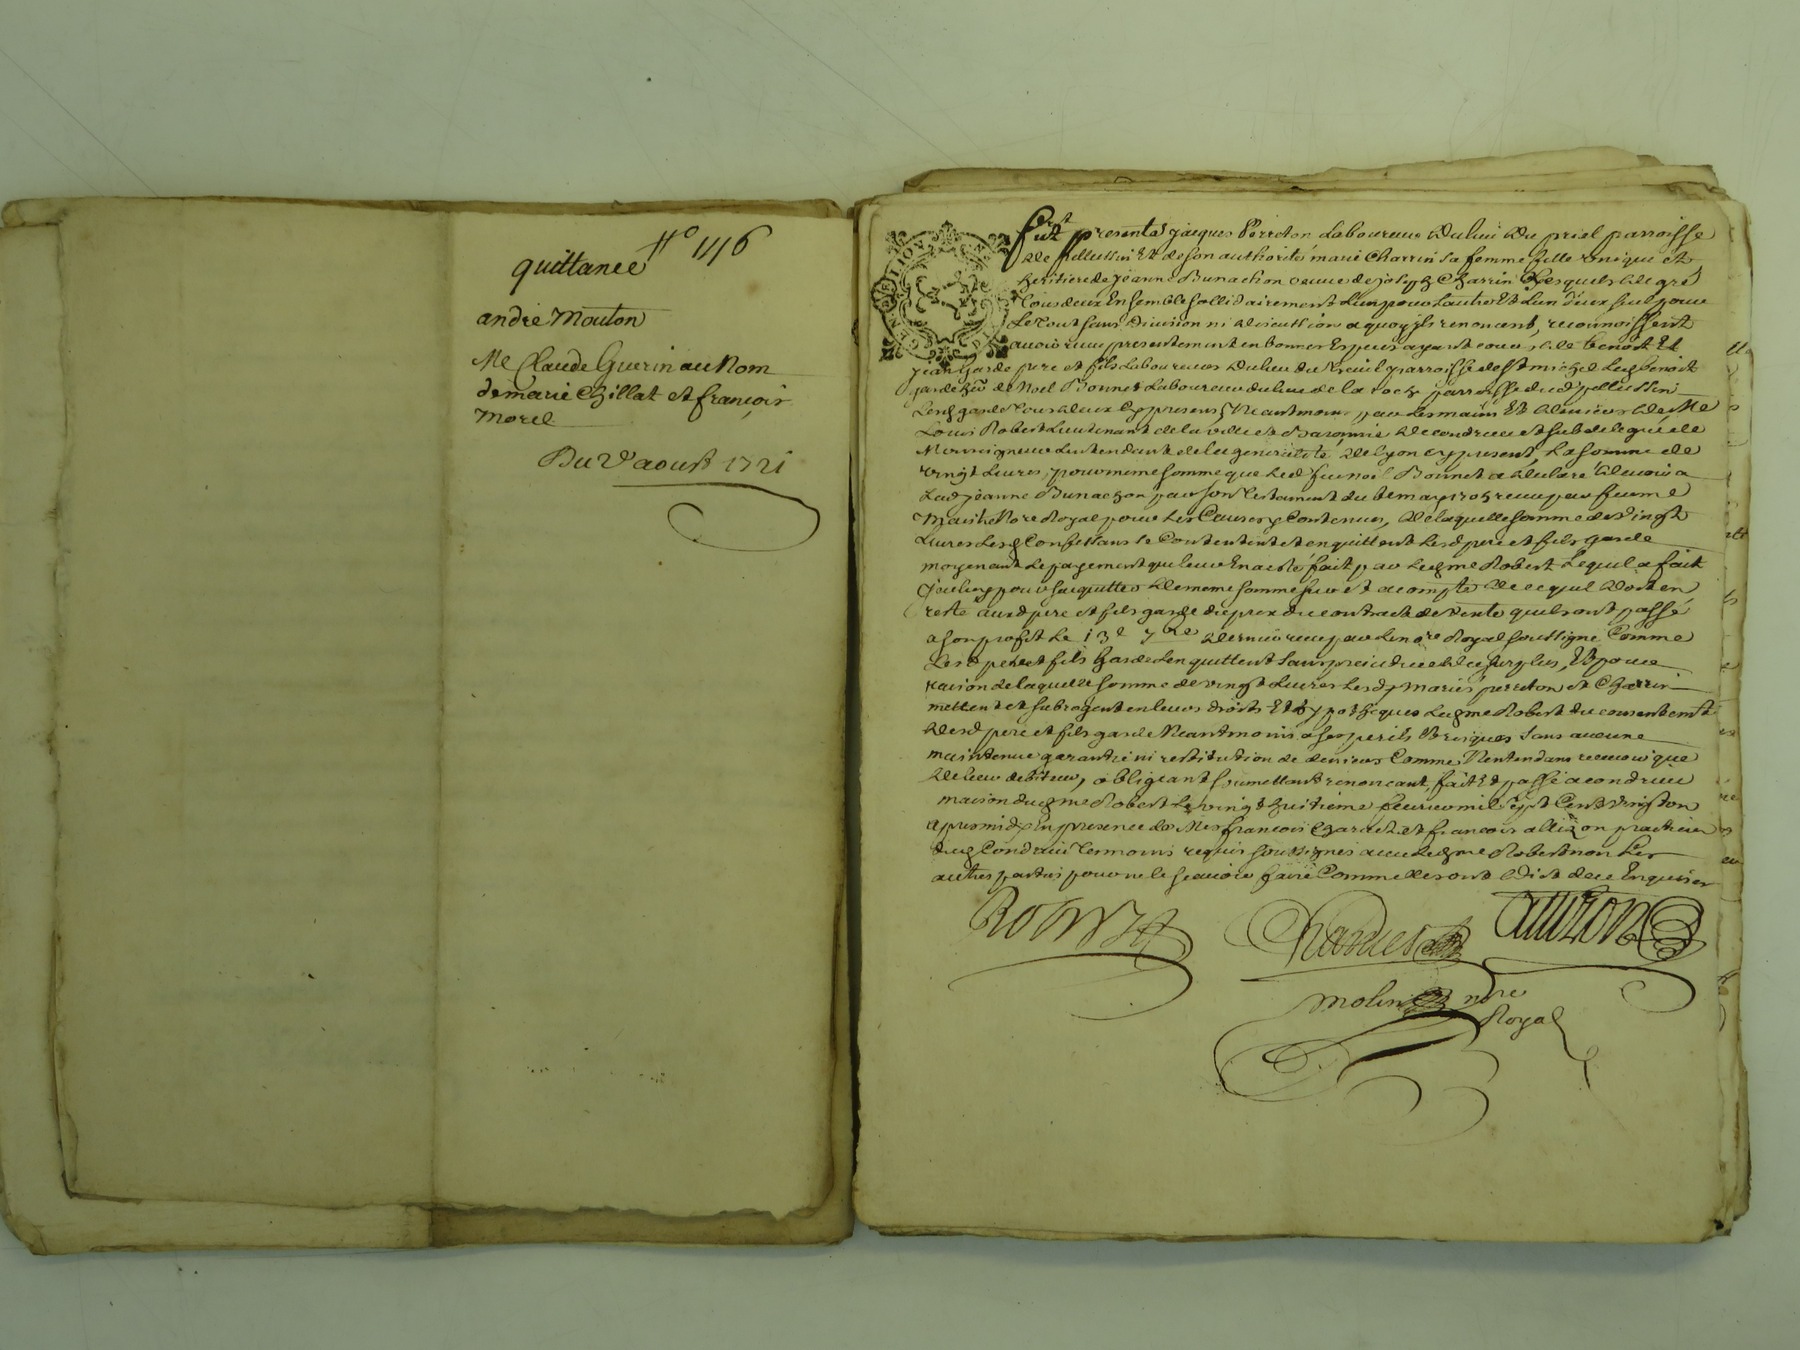 N° 1116
quittance
andre Mouton
Me Claude Guerin au Nom
de marie Chillat et françois
Morel
Du 2e aoust 1721
furt presentes jacques Perreton Laboureur du lieu du priel parroisse
de pellussin Et de son authorité marie Charrin sa femme fille unique et
heritiere de jeanne Bunachon veuve de joseph Charrin Lesquels de gré
tous deux Ensemble sollidairement L'un pour L'autre Et L'un d'eux seul pour
Le tout sans Division ni discution a quoy ils renoncent, reconnoissent
avoir reçu presentement en bonnes Especes ayant cours de benoit Et
jean garde pere et fils Laboureurs du lieu du parroisse de st michel Led benoit
garde de Noel Bonnet Laboureur du lieu de la roch parroisse dud pellussin
Lesd garde tous deux Cy presens Neantmoins par Les mains Et deniers de Me
Louis Robert Lieutenant de la ville et Baronnie de condrieu et subdelegué de
Monseigneur Lintendant de la generalité de Lyon cy present, La somme de
vingt Livres, pour meme somme que Led feu noel Bonnet a declaré devoir a
Lad jeanne Bunachon par son testament du may reçu par feu me
No.re Royal pour Les Causes y Contenues, de laquelle somme de vingt
Livres Lesd Confessans se Contentent et en quittent Lesd pere et fils garde
moyenant Le payement qui leur En a esté fait par Led me Robert Lequel a fait
pour sacquitter de meme somme sur et a compte de ce quil doit en
reste ausd pere et fils garde du prix du contract de vente quils ont passé
a son profit Le 13e 7bre dernier reçu par Le no.re Royal soussigne Comme
Lesd pere et fils Garde Len quittent sans prejudice de ce surplus, Et pour
raison de laquelle somme de vingt Livres Lesd mariés perreton et Charrin
mettent et subrogent en leurs droits Et hypotheques Led me Robert du consentemt
desd pere et fils garde Neantmoins a ses perils Et risques sans aucune
maintenue garantie ni restitution de deniers Comme Nentendans recevoir que
de leur debiteur, obligeant soumettant renoncant, fait Et passé a condrieu
maison dud me Robert Le vingt huitieme fevrier mil sept Cent vingt un
apres midy En presence de Mes francois Chardet et francois allizon praticien
dud Condrieu temoins requis soussignes avec Led me Robert non Les
autres parties pour ne le scavoir faire Comme elles ont dit de ce Enquises
Robert
Chardet
allizon
molin no.re
Royal